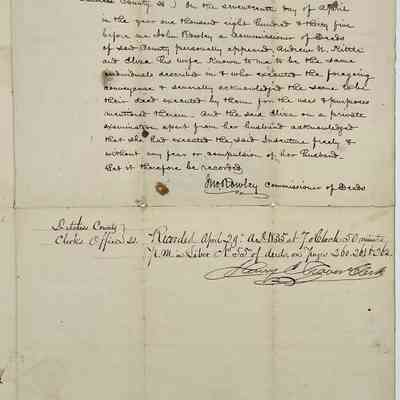 County ss) On the seventeenth day of April
in the year one thousand eight hundred & thirty five
before me John Rowley a Commissioner of Deeds
of said County personally appeared Andrew N. Kittle
and Eliza his wife Known to me to be the same
individuals described in & who executed the foregoing
conveyance & severally acknowledged the same to be
their deed executed by them for the uses & purposes
mentioned therein. And the said Eliza on a private
examination apart from her husband acknowledged
that she had executed the said Indenture freely &
without any fear or compulsion of her Husband.
Let it therefore be recorded
Jno Rowley Commissioner of Deeds
County }
Clerks Office ss.
Recorded April 29th A.D. 1835 at 7 o Clock 50 minutes
A.M. in Liber No. 55 of deeds on Pages 260. 261 & 262
Henry Clerk